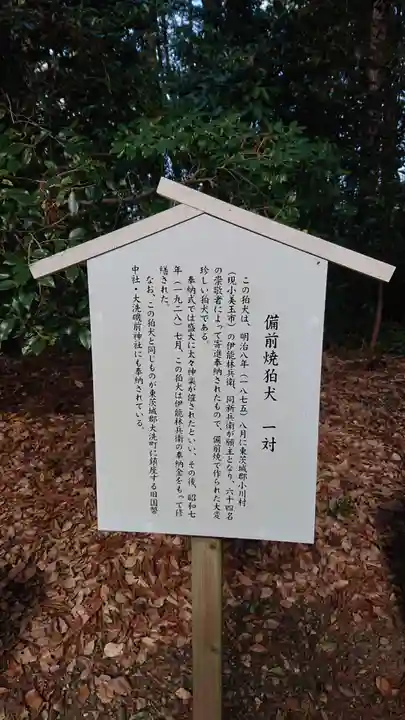 備前焼狛犬　一対
この狛犬は、明治八年（一八七五）八月に東茨城郡小川村
（現小美玉市）の伊能林兵衛、同新兵衛が願主となり、六十四名
の崇敬者によって寄進奉納されたもので、備前焼で作られた大変
珍しい狛犬である。
奉納式では盛大に太々神楽が催されたといい、その後、昭和七
年（一九二八）七月、この狛犬は伊能林兵衛の奉納金をもって修
繕された。
なお、この狛犬と同じものが東茨城郡大洗町に鎮座する旧国幣
中社・大洗磯前神社にも奉納されている。